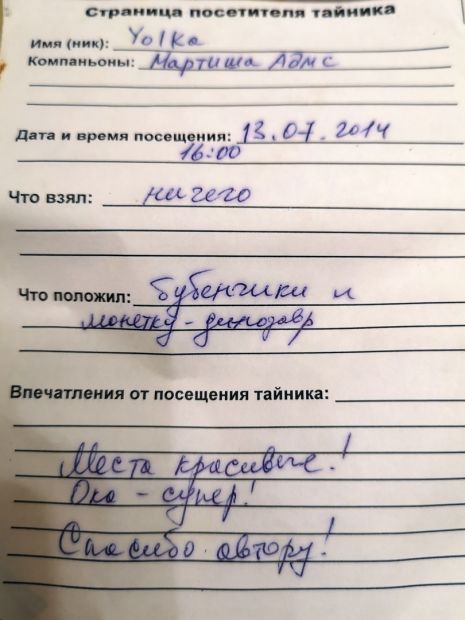 Страница посетителя тайника
Имя (ник): Yolka
Компаньоны: Мартиша Адмс
Дата и время посещения: 13.07.2014
16:00
Что взял: ничего
Что положил: бубенчики и
монетку - динозавр
Впечатления от посещения тайника:
Места красивые!
Ока - супер!
Спасибо автору!